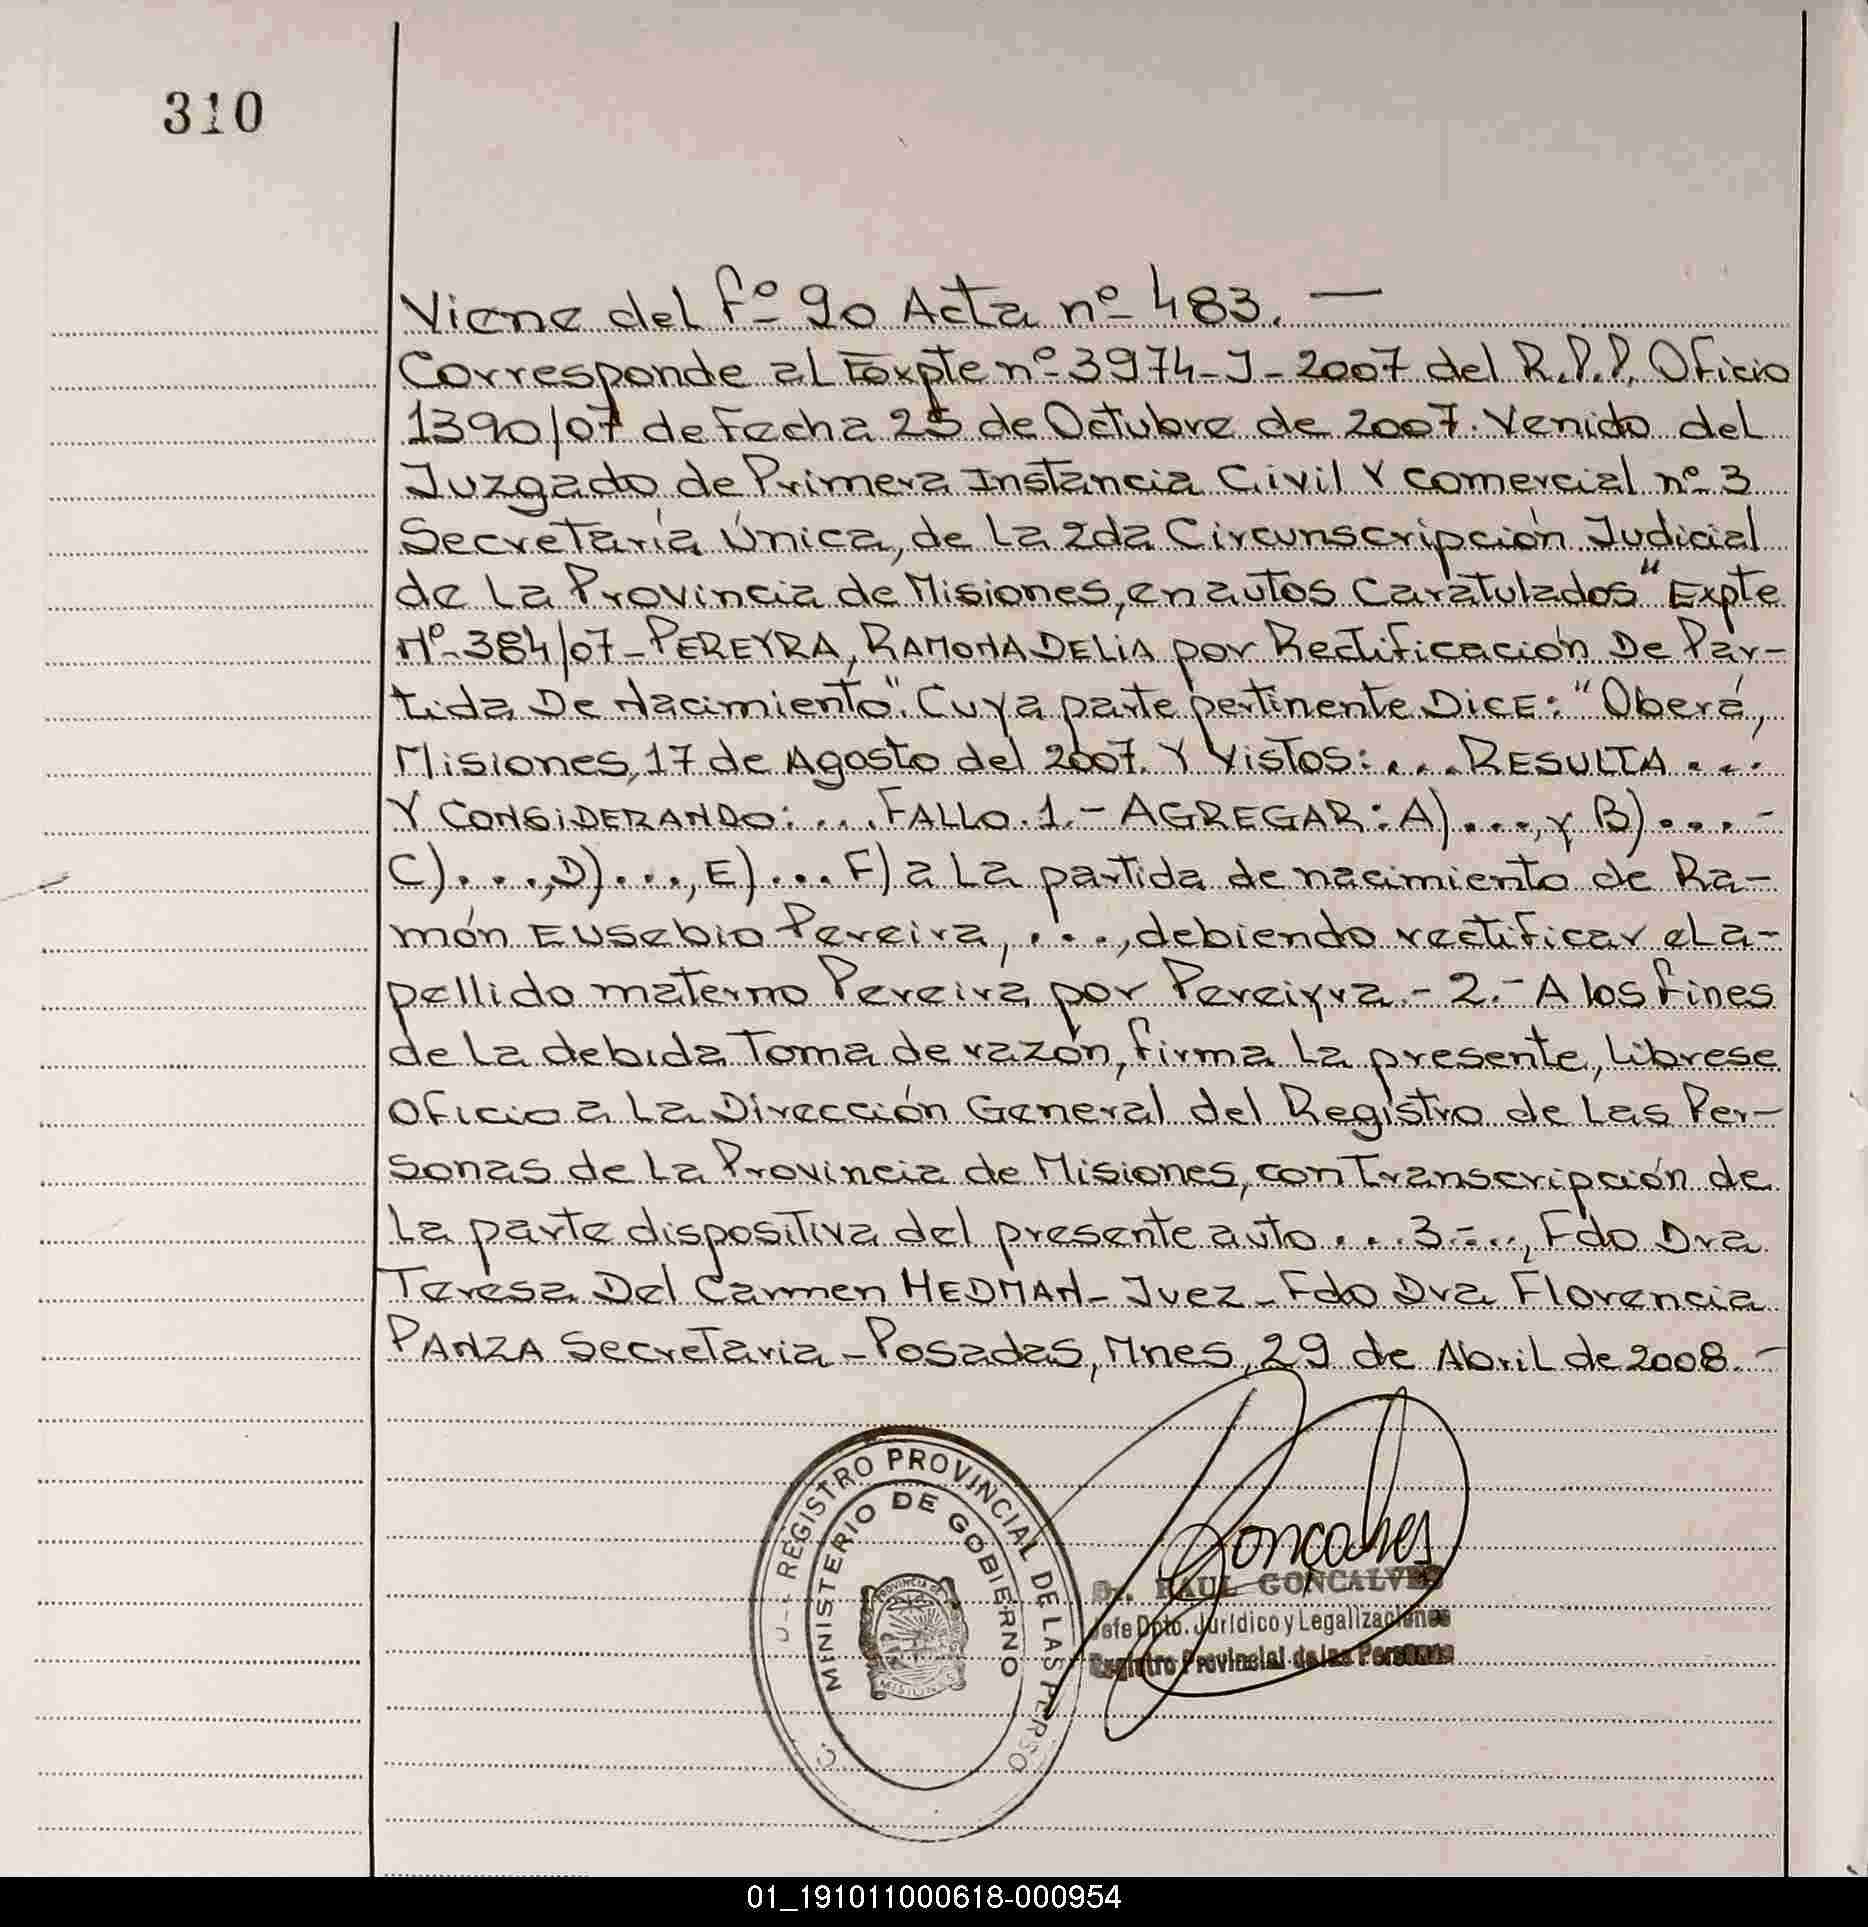 310
Viene del fº 90 Acta nº 483. —
Corresponde al Expte nº 3974-J-2007 del R.P.P. Oficio
1390/07 de Fecha 25 de Octubre de 2007. Venido del
Juzgado de Primera Instancia Civil Y Comercial nº 3
Secretaría Única, de La 2da Circunscripción Judicial
de La Provincia de Misiones, en autos Caratulados "Expte
Nº 384/07-PEREYRA, RAMONA DELIA por Rectificación De Par-
tida De Nacimiento". Cuya parte pertinente DICE: "Oberá,
Misiones, 17 de Agosto del 2007. Y Vistos: .... RESULTA ...
Y CONSIDERANDO: .... FALLO. 1.- AGREGAR: A) ...., y B) .... -
C) ...., D) ...., E) ... F) a La partida de nacimiento de Ra-
món EUSebio Pereira, ...., debiendo rectificar eL a-
pellido materno Pereira por Pereiyra.- 2.- A los fines
de La debida Toma de razón, firma La presente, Librese
Oficio a La Dirección General del Registro de Las Per-
sonas de La Provincia de Misiones, con Transcripción de
La parte dispositiva del presente auto ... 3.-..., Fdo Dra
Teresa Del Carmen HEDMAN- Juez- Fdo Dra Florencia
PANZA Secretaria - Posadas, Mnes, 29 de Abril de 2008. -
REGISTRO PROVINCIAL DE LAS PERSO
MINISTERIO DE GOBIERNO
PROVINCIA DE
MISIONES
Goncalves
Dr. RAUL GONCALVES
Jefe Dpto. Jurídico y Legalizaciones
Registro Provincial de las Personas
01_191011000618-000954